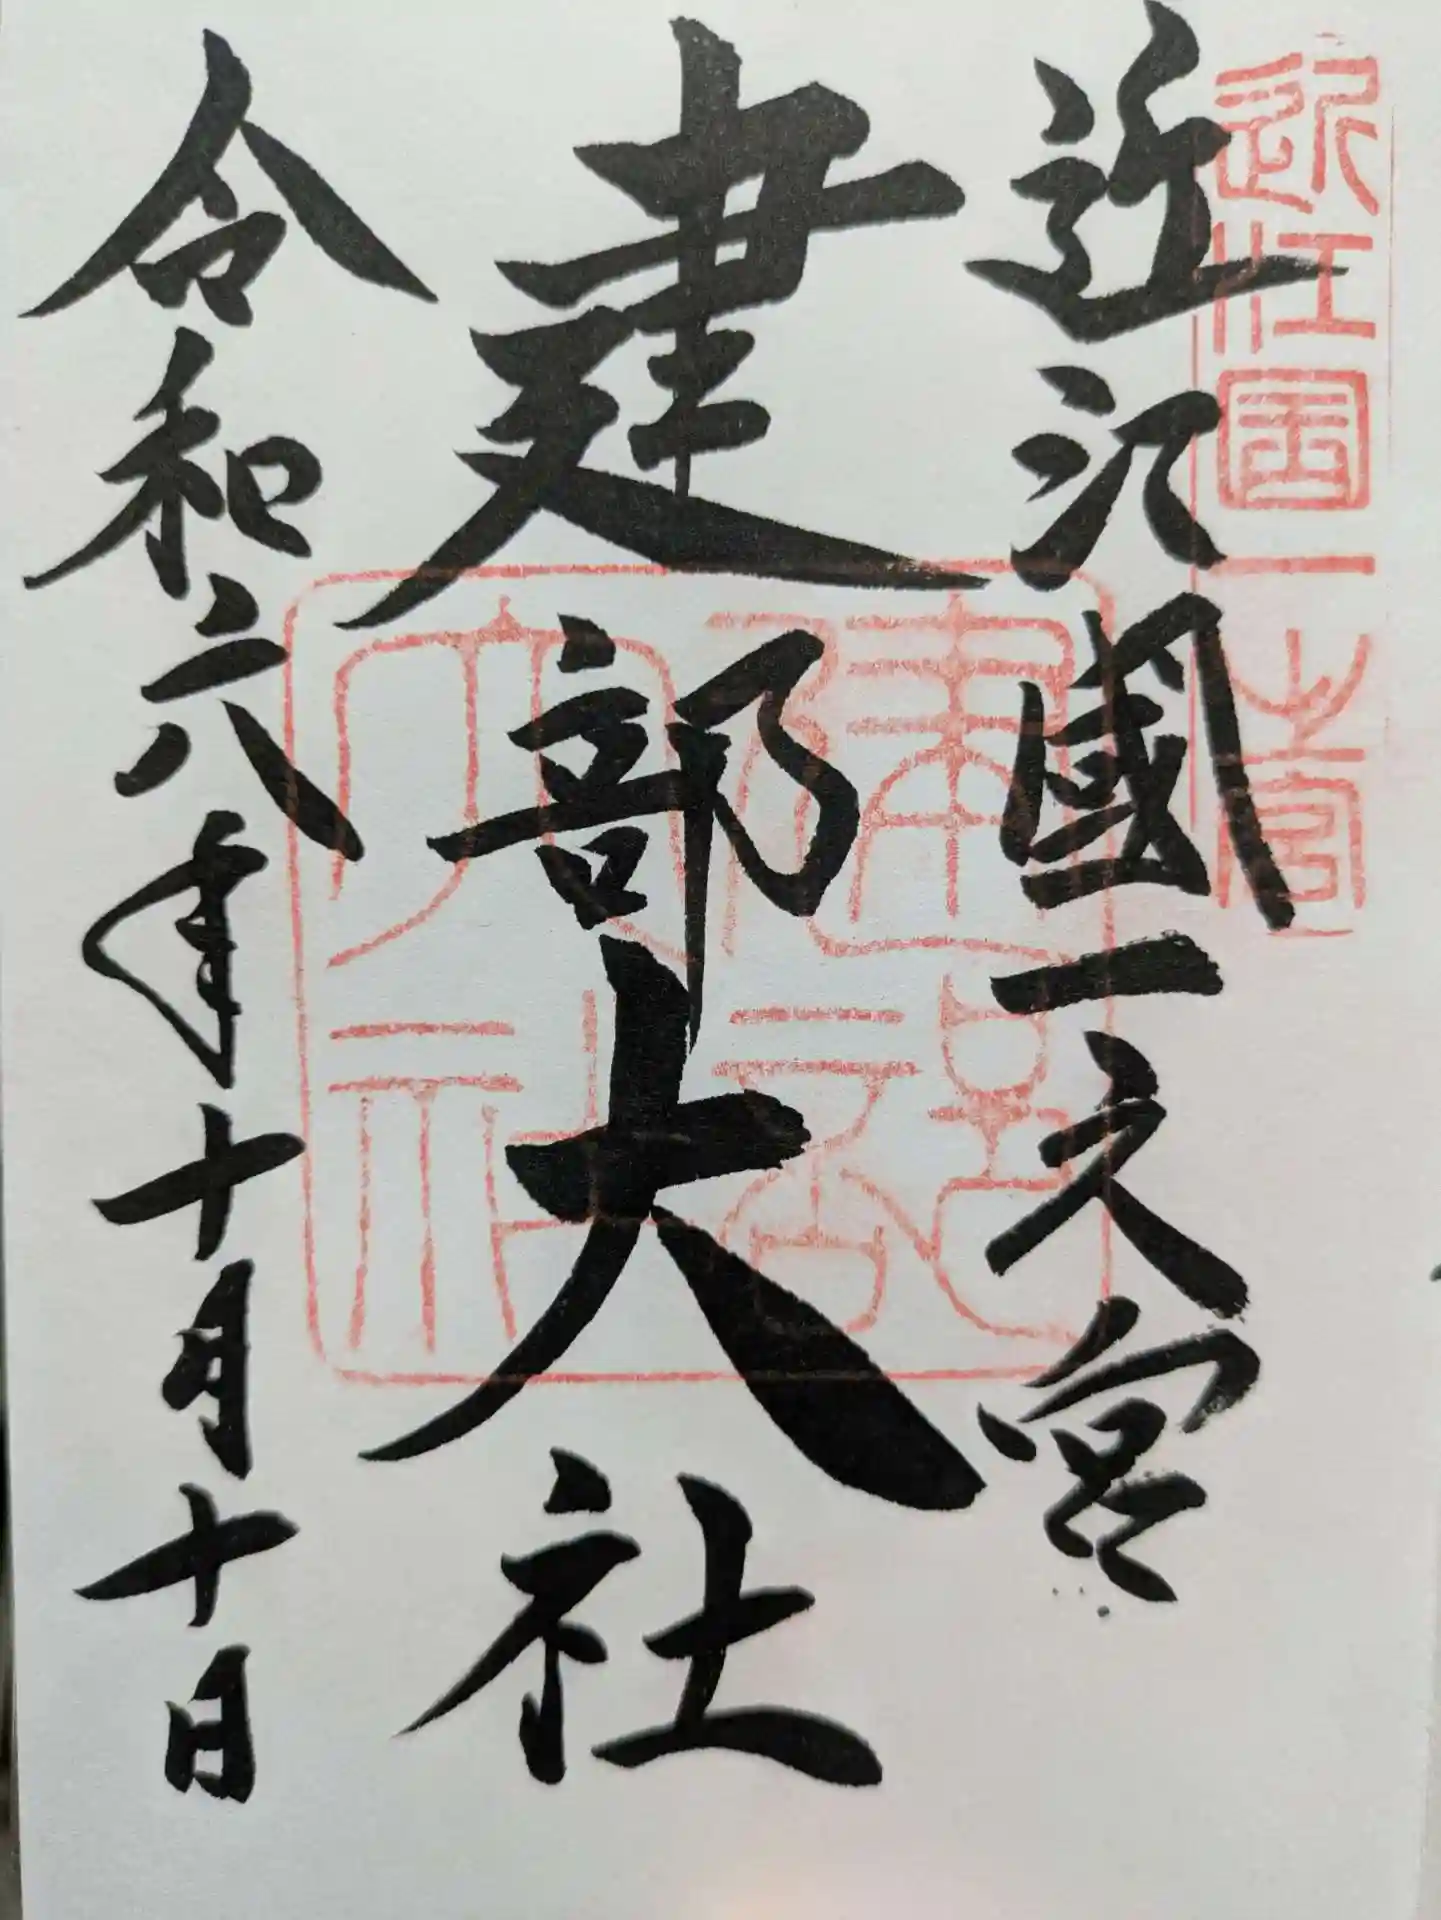 近江国一之宮
近江國一之宮
建部大社
建部大社
令和六年十月十日